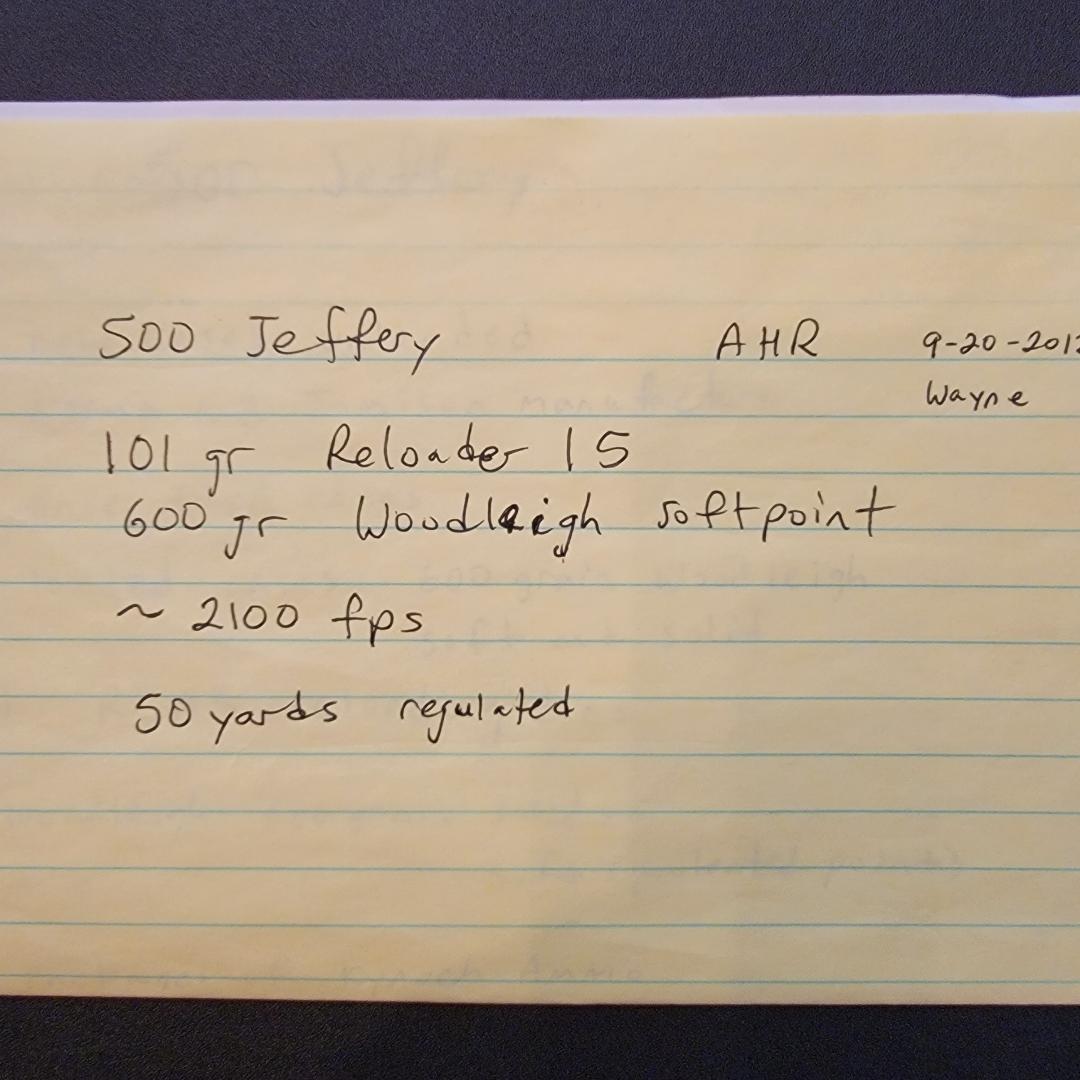 500 Jeffery AHR 9-20-2012
Wayne
101 gr Reloader 15
600 gr Woodleigh softpoint
~ 2100 fps
50 yards regulated